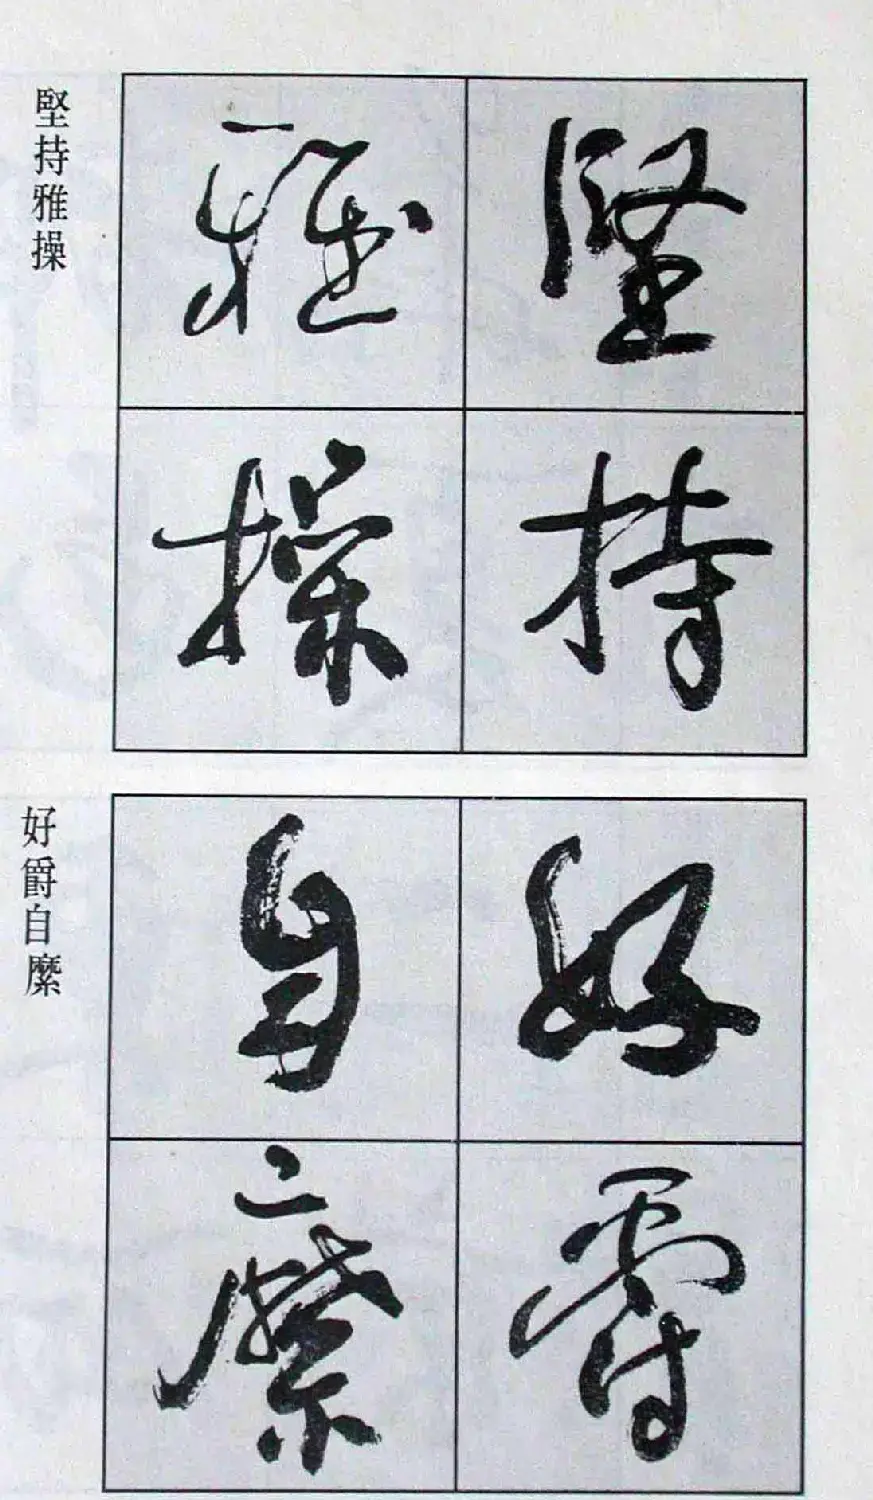 堅持
雅操
堅持雅操
好爵
自縻
好爵自縻